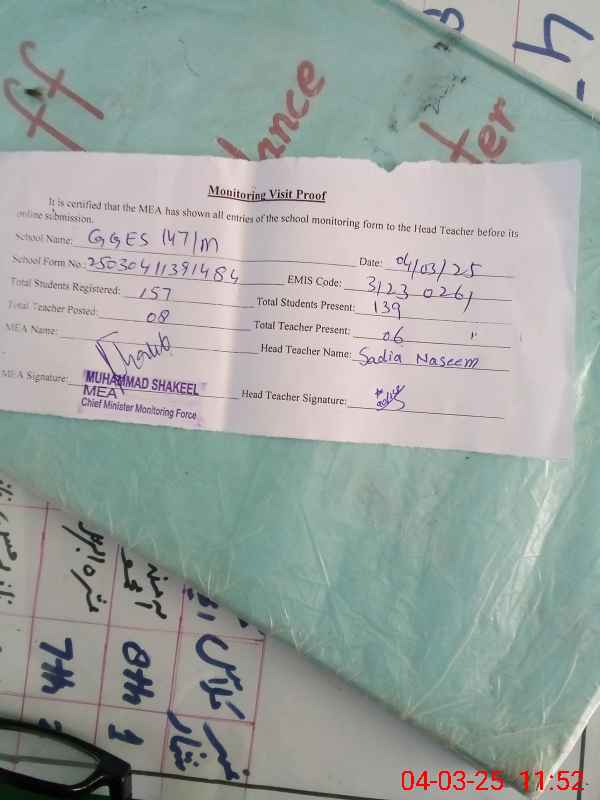 Staff
Attendance
Monitoring Visit Proof
It is certified that the MEA has shown all entries of the school monitoring form to the Head Teacher before its
online submission.
School Name: GGES 147/M Date: 04/03/25
School Form No.: 25030411391484 EMIS Code: 31230261
Total Students Registered: 157 Total Students Present: 139
Total Teacher Posted: 08 Total Teacher Present: 06 "
MEA Name: Head Teacher Name: Sadia Naseem
MEA Signature: Head Teacher Signature:
MUHAMMAD SHAKEEL
MEA
Chief Minister Monitoring Force
نمبر شمار
کلاس
8th 1
7th 2
04-03-25 11:52